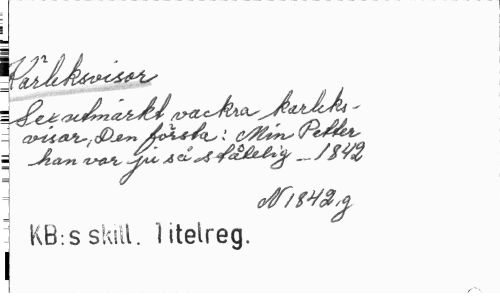 Kärleksvisor
Sex utmärkt vackra kärleks-
visor, Den första: Min Petter
han var ju så ståtelig _ 1842
N 1842.g
KB:s skill. Titelreg.